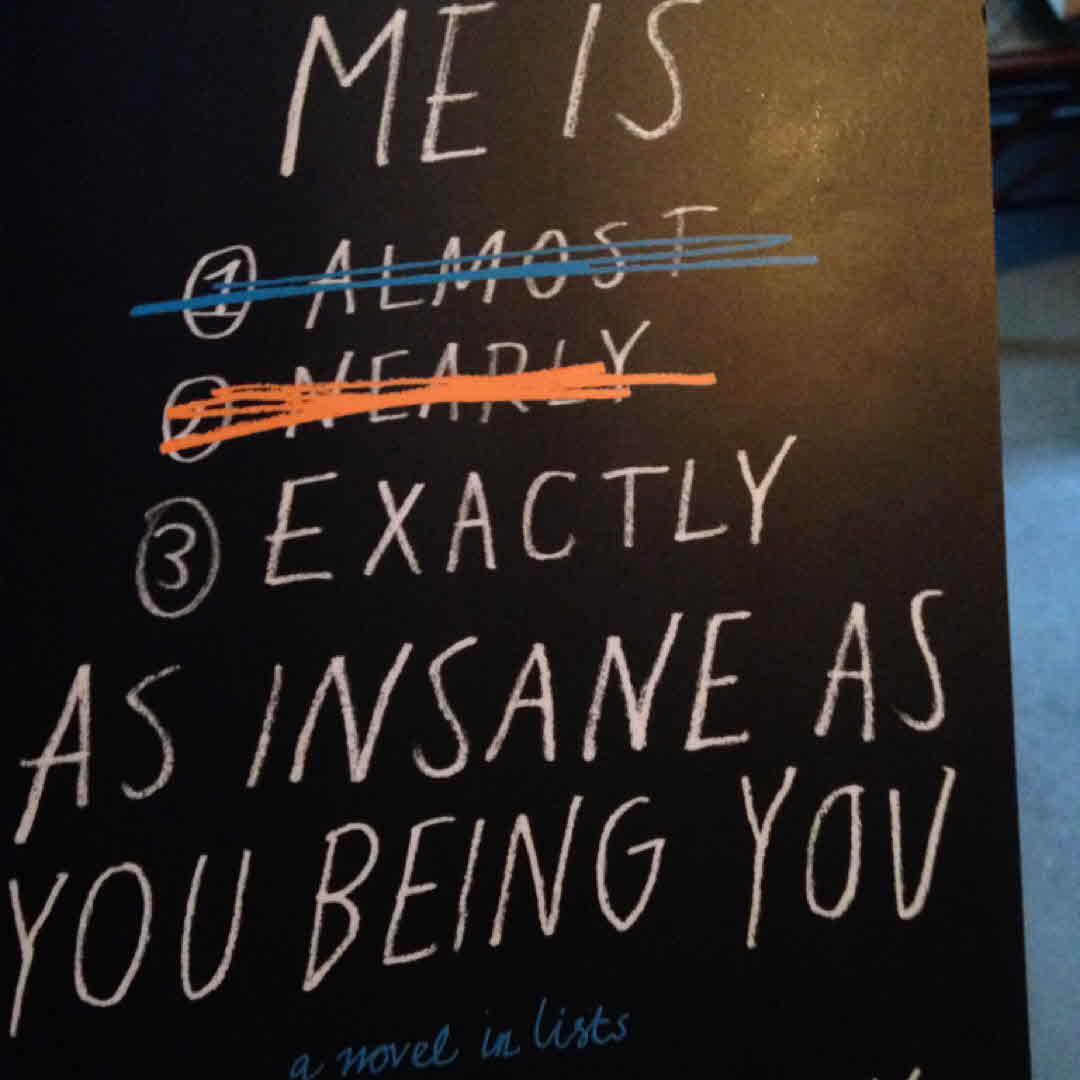 ME IS
① ALMOST
② NEARLY
③ EXACTLY
AS INSANE AS
YOU BEING YOU
a novel in lists